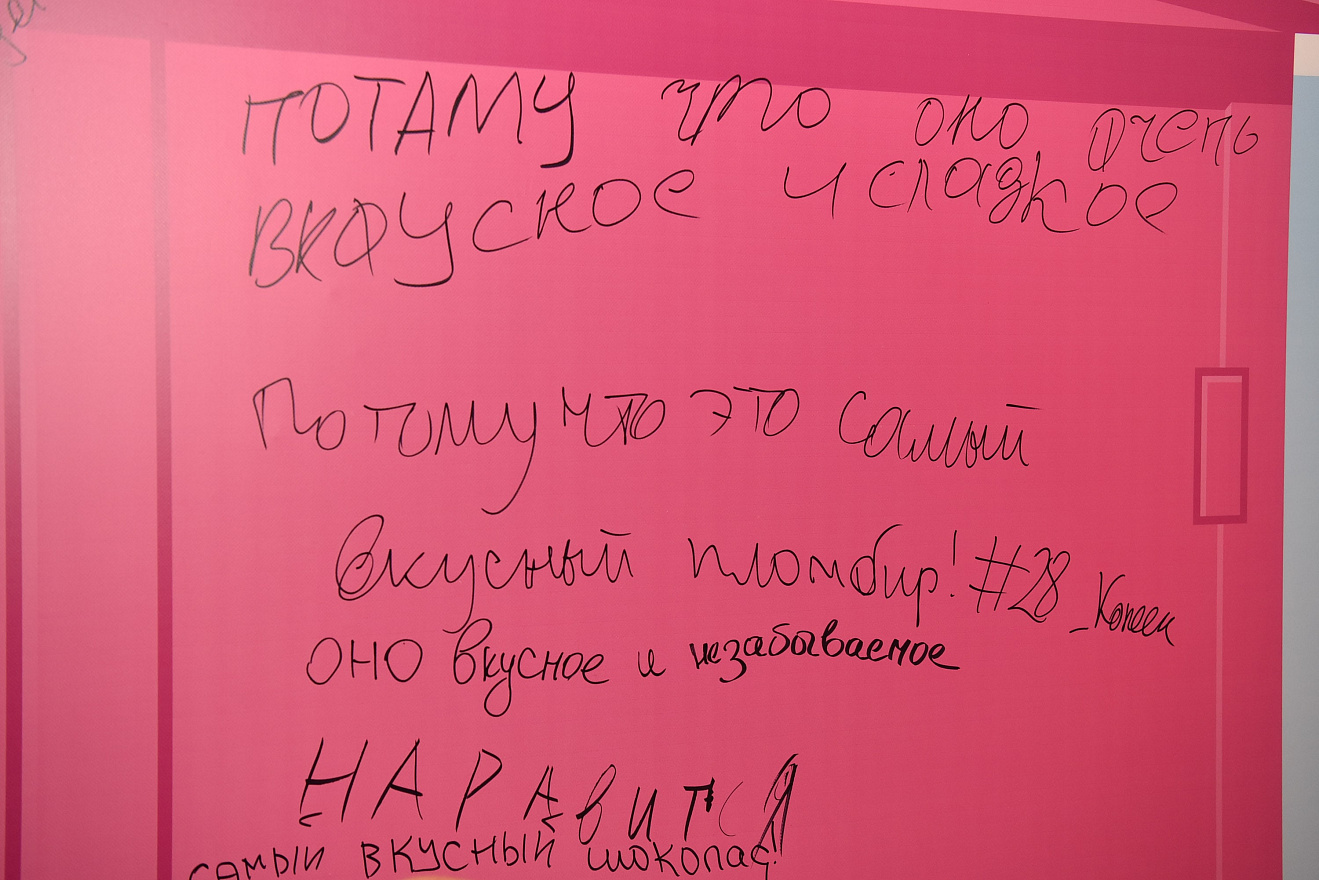 ПОТАМУ что оно очень
ВКФУСНОЕ И сладкое
Потому что это самый
вкусный пломбир! #28_Копеек
оно вкусное и незабываемое
НАРАвИТСЯ
САМЫЙ ВКУСНЫЙ шоколад!